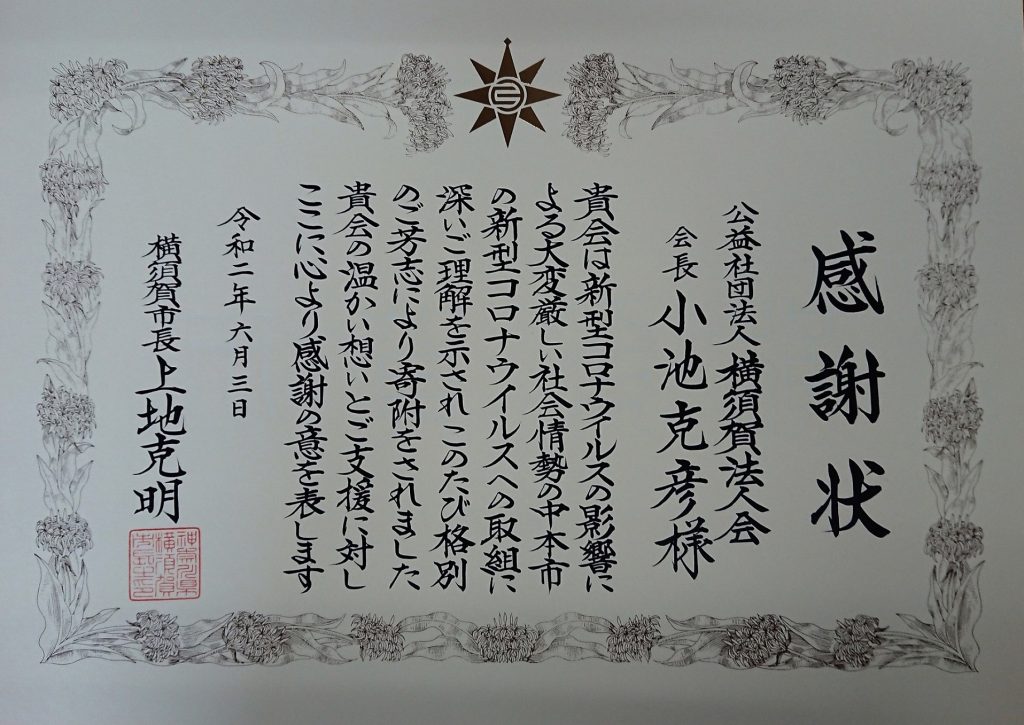 感謝状
公益社団法人横須賀法人会
会長 小池克彦様
貴会は新型コロナウイルスの影響に
よる大変厳しい社会情勢の中本市
の新型コロナウイルスへの取組に
深いご理解を示されこのたび格別
のご芳志により寄附をされました
貴会の温かい想いとご支援に対し
ここに心より感謝の意を表します
令和二年六月三日
横須賀市長 上地克明
神奈川県
横須賀
市長之印